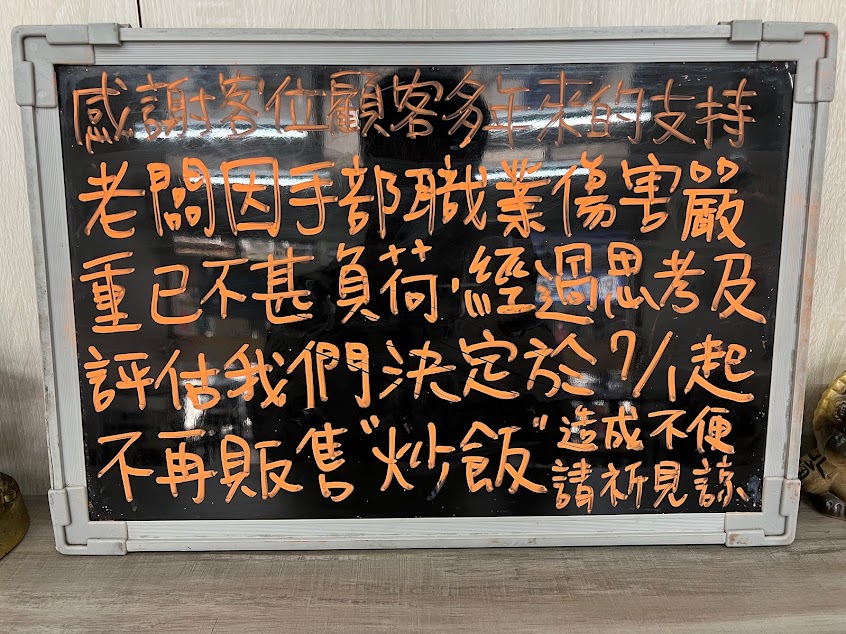 感謝客位顧客多年來的支持
老闆因手部職業傷害嚴
重已不甚負荷,經過思考及
評估我們決定於7/1起
不再販售"炒飯"
造成不便
請祈見諒